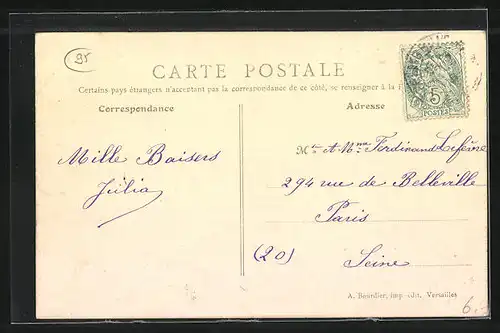 95
CARTE POSTALE
Certains pays étrangers n'acceptant pas la correspondance de ce côté, se renseigner à la
Correspondance
Adresse
5
POSTES
Mille Baisers
Julia
Mr et Mme Ferdinand Lefèvre
294 rue de Belleville
Paris
(20) Seine
A. Bourdier, imp.-édit. Versailles